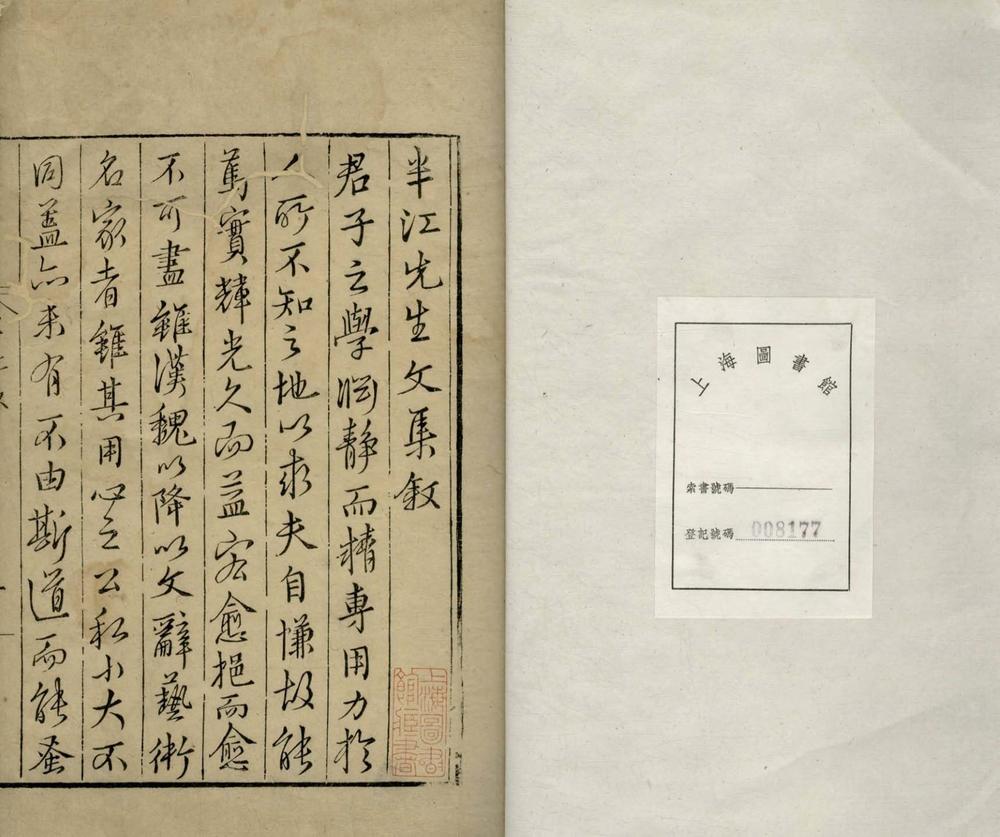 上海圖書館
索書號碼
登記號碼 008177
半江先生文集叙
君子之學淵靜而精專用力於
人所不知之地以求夫自慊故能
篤實輝光久而益宏愈挹而愈
不可盡雖漢魏以降以文辭藝術
名家者雖其用心之公私小大不
同蓋亦未有不由斯道而能
上海圖書館藏書